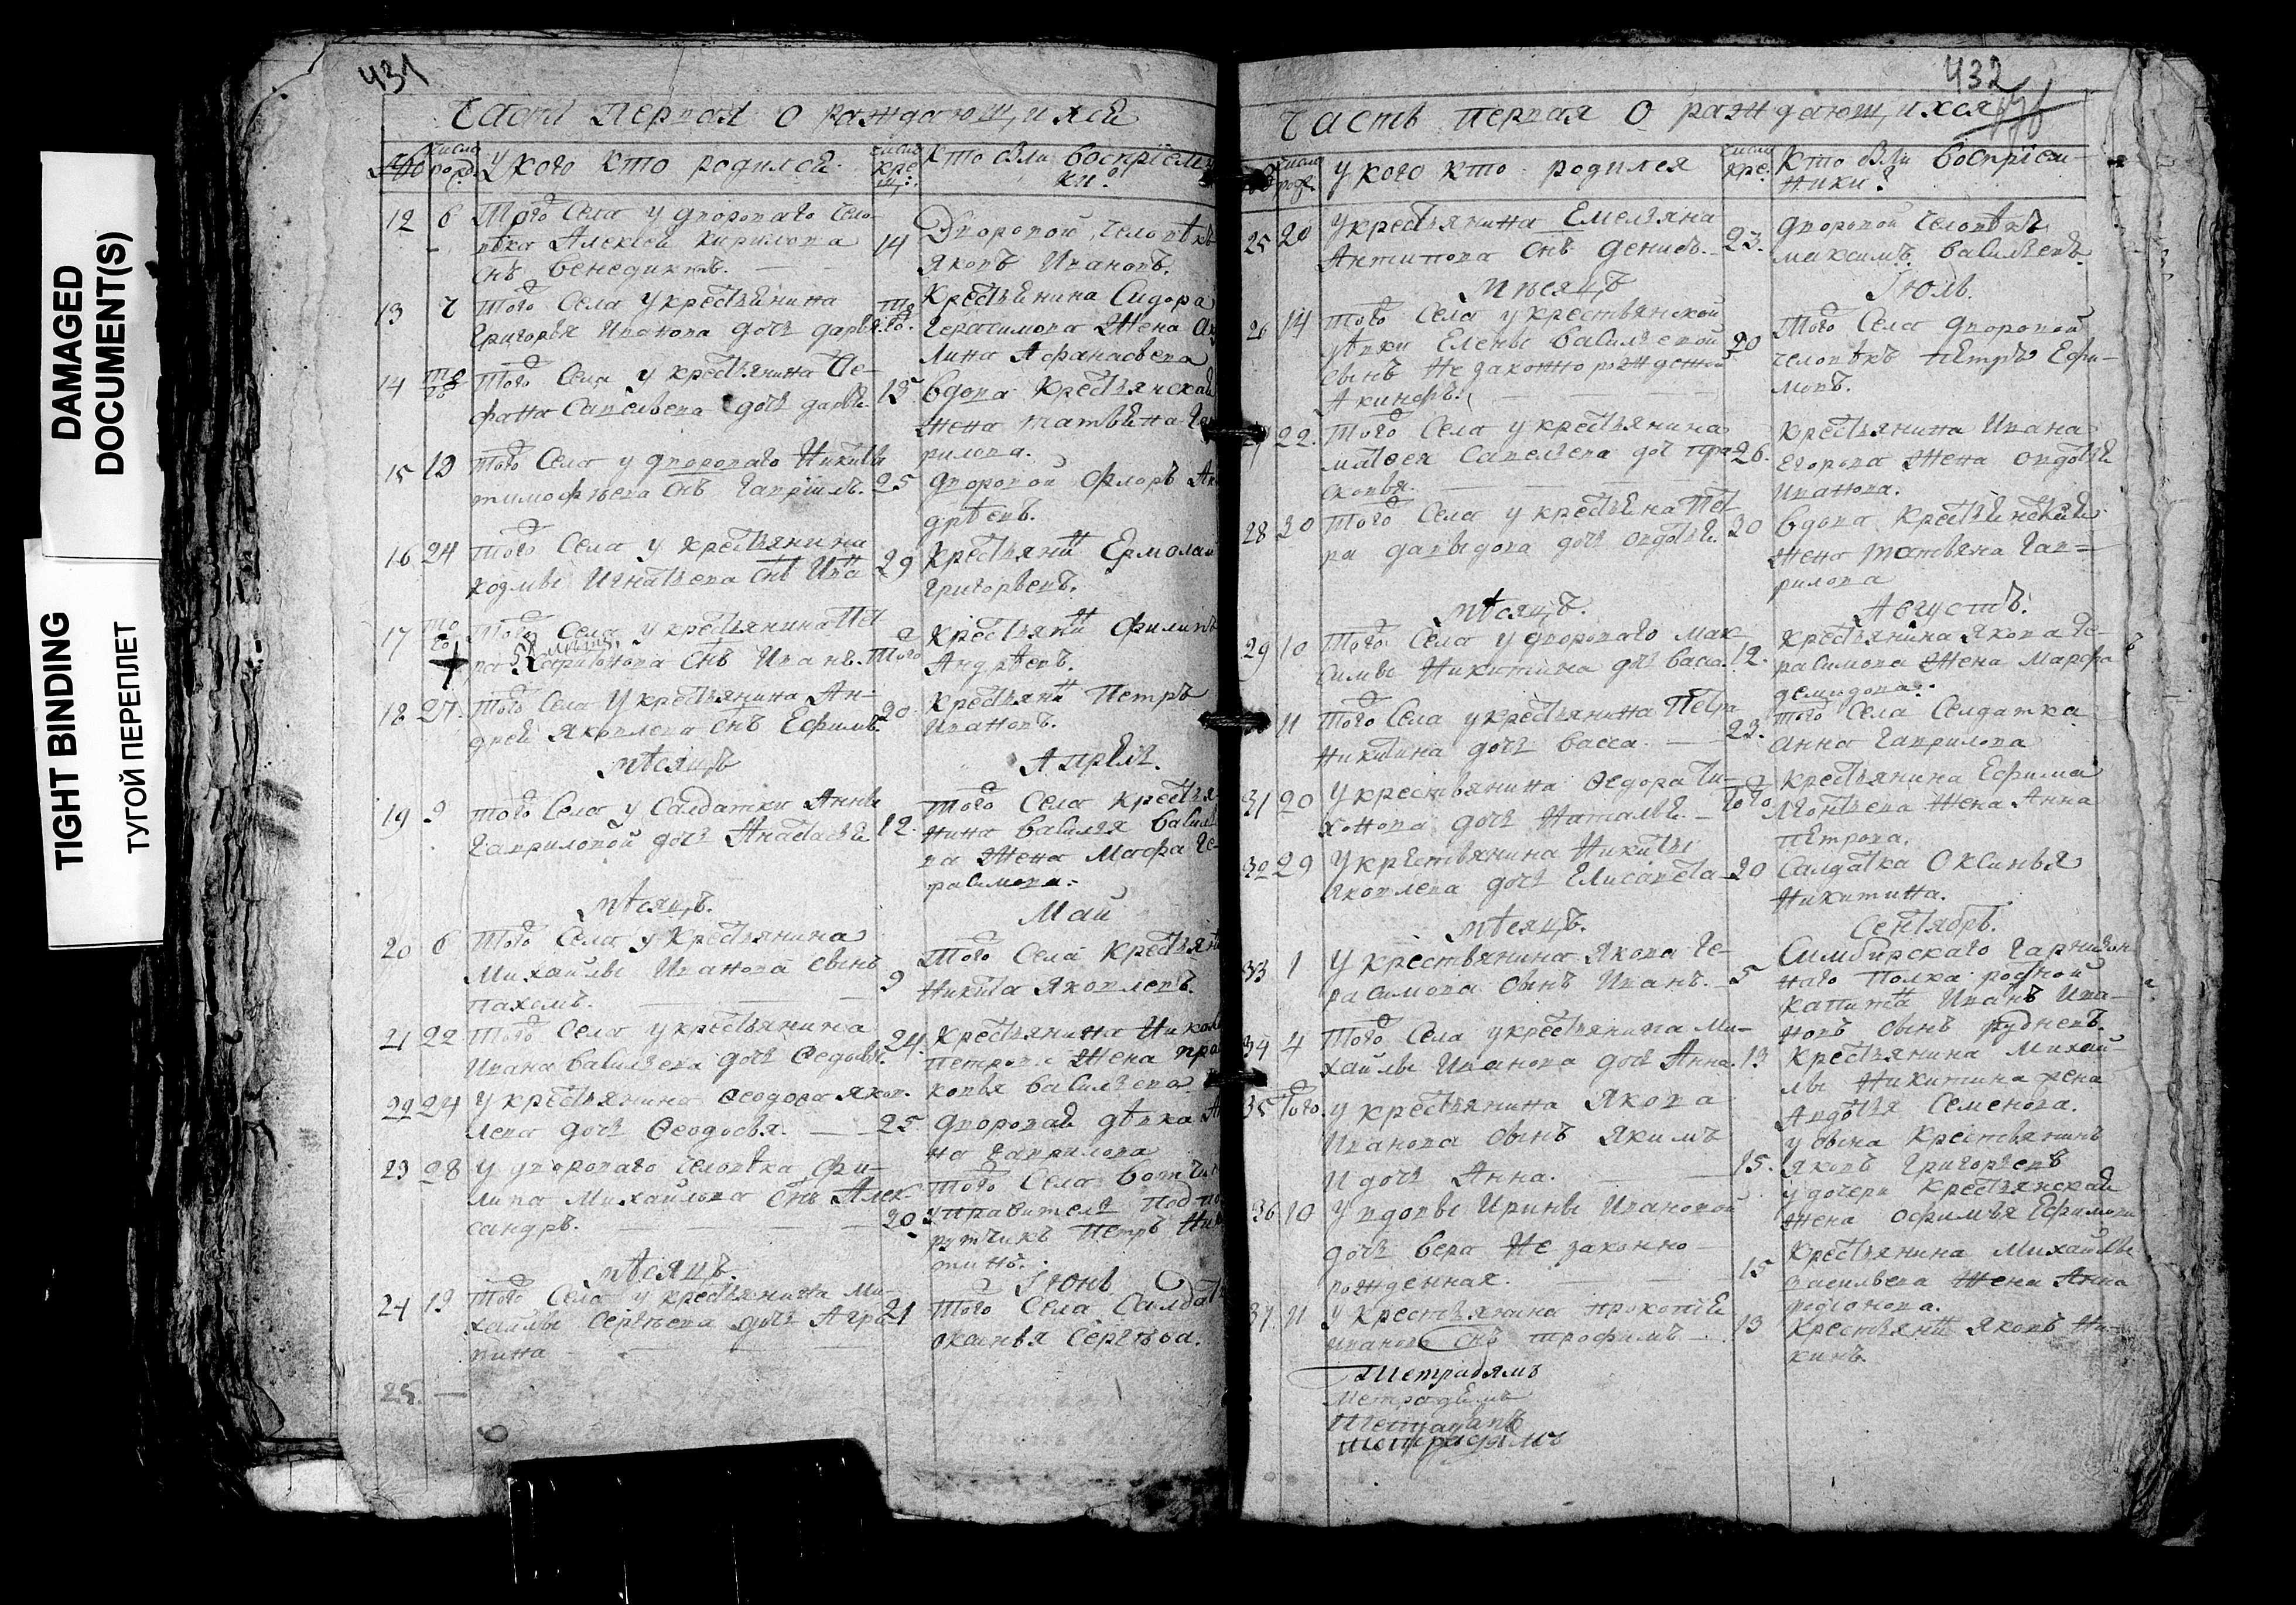 DAMAGED
DOCUMENT(S)
TIGHT BINDING
ТУГОЙ ПЕРЕПЛЕТ
431
Часть первая о раждающихся
число рожд:
У кого кто родился
число кре щ:
Кто были восприемни
ки:
12 6 Того Села у двороваго чело
века Алексея Кирилова
снъ Бенедиктъ.
14 Дворовой человѣкъ
Яковъ Ивановъ.
13 7 Того Села у крестьянина
Григорья Иванова дочь Дарья
Крестьянина Сидора
Герасимова жена
Афанасьева
14 Того Села у крестьянина Сте
фана Савельева дочь Дарья
15 Вдова крестьянская
жена Татьяна Гав
рилова.
15 19 Того Села у двороваго Никиты
Тимофѣева снъ Гавріилъ.
25 Дворовой Флоръ Ан
дрѣевъ.
16 24 Того Села у крестьянина
Козмы Игнатьева снъ Ива
29 Крестьянинъ Ермолай
Григорьевъ.
17 Того Села у крестьянина Пет
ра снъ Иванъ.
Того Крестьянинъ Филипъ
Андрѣевъ.
18 27. Того Села у крестьянина Ан
дрей Яковлева снъ Ефимъ.
30. Крестьянинъ Петръ
Ивановъ.
мѣсяцъ Апрель.
19 9 Того Села у Салдатки Анны
Гавриловой дочь Анастасья
12. Того Села крестья
нина Василья Василье
ва жена Марфа Ге
расимова.
мѣсяцъ. Май
20 6 Того Села у Крестьянина
Михайлы Иванова сынъ
Пахомъ.
9 Того Села крестьянинъ
Никита Яковлевъ.
21 22 Того Села у крестьянина
Ивана Васильева дочь Федосья.
24. Крестьянина Никол
Петрова жена Прас
ковья Васильева
22 24 У крестьянина Ѳеодора Яков
лева дочь Ѳеодосья.
25 Дворовая дѣвка Ан
на Гаврилова
23 28 У двороваго человѣка Фи
липа Михайлова снъ Алек
сандръ.
30 Того Села вотчин
управитель Подпо
рутчикъ Петръ Ники
тинъ.
мѣсяцъ. Іюнь
24 19 Того Села у крестьянина Ми
хайлы Сергѣева дочь Агра
пина
21 Того Села Салдат
Оксинья Сергѣева.
25.
432
Часть первая о раждающихся
У кого кто родился
число кре:
Кто были восприем
ники:
25 20 У крестьянина Емельяна
Антипова снъ Денисъ.
23. Дворовой человѣкъ
Максимъ Васильевъ.
мѣсяцъ Іюль.
26 14 Того Села у крестьянской
дѣвки Елены Васильевой
сынъ незаконнорожденой
Акинфъ.
20 Того Села дворовой
человѣкъ Петръ Ефи
мовъ.
22. Того Села у крестьянина
Матвея Савельева доч Пра
сковья.
26. Крестьянина Ивана
Егорова жена Овдотья
Иванова.
28 30 Того Села у крестьянина Пет
ра Давыдова дочь Овдотья.
30 Вдова Крестьянская
жена Татьяна Гав
рилова
мѣсяцъ. Августъ.
29 10 Того Села у двороваго Мак
симы Никитина доч Васса.
12. Крестьянина Якова Ге
расимова жена Марфа
Демидова.
11 Того Села у крестьянина Петра
Никитина дочь Васса.
23. Того Села Солдатка
Анна Гаврилова
31 20 У крестьянина Ѳедора Ти
хонова дочь Наталья.
Того Крестьянина Ефима
Леонтьева жена Анна
Петрова.
32 29 У крестьянина Никиты
Яковлева дочь Елисавета
30 Салдатка Оксинья
Никитина.
мѣсяцъ. Сентябрь.
33 1 У крестьянина Якова Ге
расимова сынъ Иванъ.
5 Симбирскаго гарнизон
наго полка ротной
капитанъ Иванъ Ива
новъ сынъ Рудневъ.
34 4 Того Села у крестьянина Ми
хайлы Иванова дочь Анна.
13 Крестьянина Михай
лы Никитина жена
Авдотья Семенова.
35 Того. У крестьянина Якова
Иванова сынъ Якимъ
и дочь Анна.
15. у сына Крестьянинъ
Яковъ Григорьевъ
у дочери Крестьянская
жена Офимья Ефимова
36 10 У вдовы Ирины Ивановой
дочь Вера не законно
рожденная.
15 Крестьянина Михайлы
Васильева жена Анна
Родіонова.
37 11 У Крестьянина Прокопіе
Иванова снъ Трофимъ
13 Крестьянинъ Яковъ Ни
кинъ.